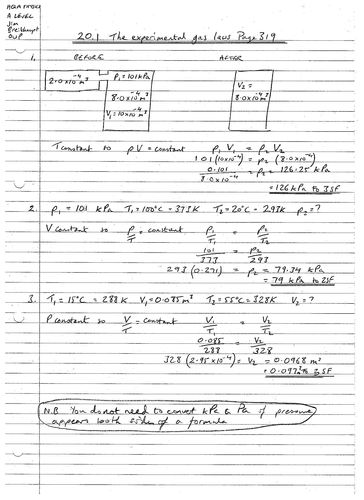 AQA PHYSICS
A LEVEL
Jim
Breithaupt
OUP
20.1 The experimental gas laws Page 319
1. BEFORE AFTER
2.0x10⁻⁴m³ p₁=101kPa V₂=
8.0x10⁻⁴m³ 8.0x10⁻⁴m³
V₁=10x10⁻⁴m³
T constant so pV = constant p₁V₁ = p₂V₂
101(10x10⁻⁴) = p₂(8.0x10⁻⁴)
0.101 = p₂ = 126.25 kPa
8.0x10⁻⁴
= 126 kPa to 3SF
2. p₁ = 101 kPa T₁=100°C = 373K T₂=20°C = 293K p₂=?
V constant so p = constant p₁ = p₂
T T₁ T₂
101 = p₂
373 293
293(0.271) = p₂ = 79.34 kPa
= 79 kPa to 2SF
3. T₁ = 15°C = 288K V₁=0.085m³ T₂=55°C = 328K V₂=?
P constant so V = constant V₁ = V₂
T T₁ T₂
0.085 = V₂
288 328
328(2.95x10⁻⁴) = V₂ = 0.0968 m³
= 0.097m³ to 2SF
N.B. You do not need to convert kPa to Pa if pressure
appears both sides of a formula